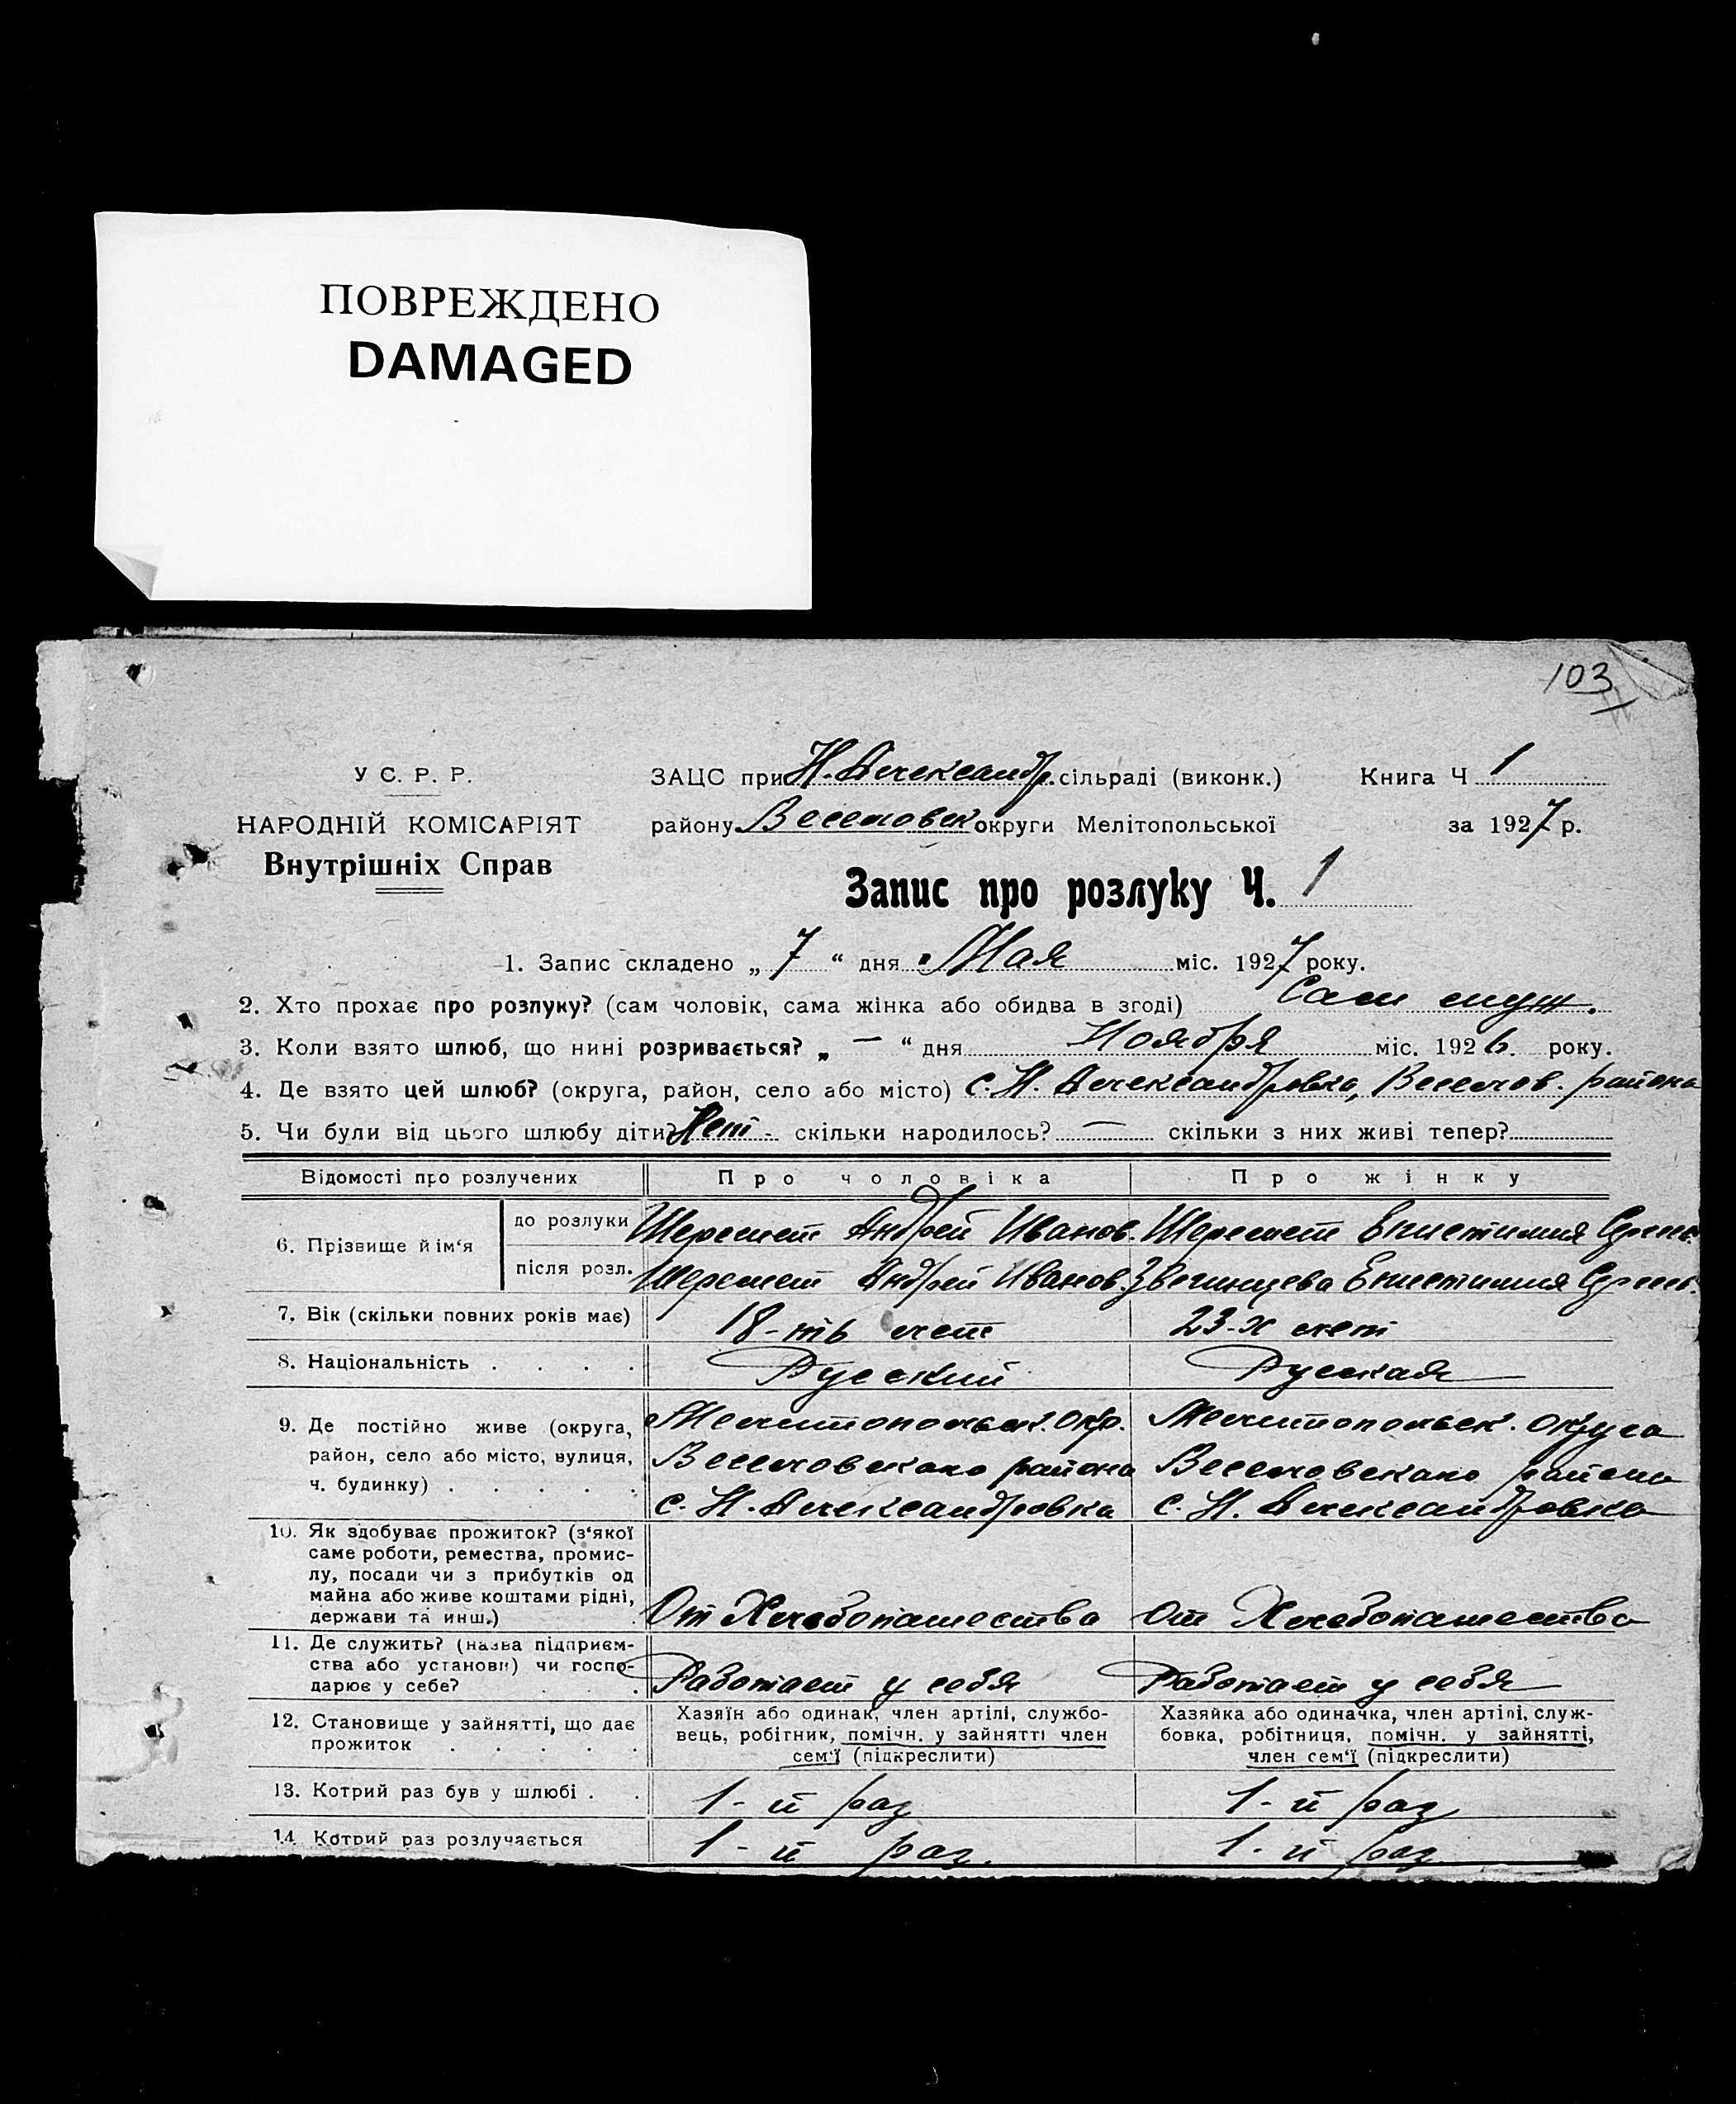 ПОВРЕЖДЕНО
DAMAGED
103
У С. Р. Р.
НАРОДНІЙ КОМІСАРІЯТ
Внутрішніх Справ
ЗАЦС при Н. Александр. сільраді (виконк.) Книга Ч 1
району Веселовск округи Мелітопольської за 1927 р.
Запис про розлуку Ч. 1
1. Запис складено „ 7 “ дня Мая міс. 1927 року.
2. Хто прохає про розлуку? (сам чоловік, сама жінка або обидва в згоді) Сам муж.
3. Коли взято шлюб, що нині розривається? „ — “ дня Ноября міс. 1926. року.
4. Де взято цей шлюб? (округа, район, село або місто) С. Н. Александровка, Веселов. района
5. Чи були від цього шлюбу діти? Нет - скільки народилось? — скільки з них живі тепер?
Відомості про розлучених Про чоловіка Про жінку
6. Прізвище й ім‘я
до розлуки Шеремет Андрей Иванов. Шеремет Епистимия
після розл. Шеремет Андрей Иванов. Звегинцева Епистимия
7. Вік (скільки повних років має) 18-ть лет 23-х лет
8. Національність . . . . Русский Русская
9. Де постійно живе (округа, район, село або місто, вулиця, ч. будинку) . . . . .
Мелитопольск. окр. Мелитопольск. округа
Веселовскаго района Веселовскаго района
с. Н. Александровка с. Н. Александровка
10. Як здобуває прожиток? (з‘якої
саме роботи, ремества, промис-
лу, посади чи з прибутків од
майна або живе коштами рідні,
держави та инш.)
От Хлебопашества От Хлебопашества
11. Де служить? (назва підприєм-
ства або установи) чи госпо-
дарює у себе? . . .
Работает у себя Работает у себя
12. Становище у зайнятті, що дає
прожиток . . . . .
Хазяїн або одинак, член артілі, службо-
вець, робітник, помічн. у зайнятті член
сем‘ї (підкреслити)
Хазяйка або одиначка, член артілі, служ-
бовка, робітниця, помічн. у зайнятті,
член сем‘ї (підкреслити)
13. Котрий раз був у шлюбі . . 1-й раз 1-й раз
14. Котрий раз розлучається 1-й раз. 1-й раз